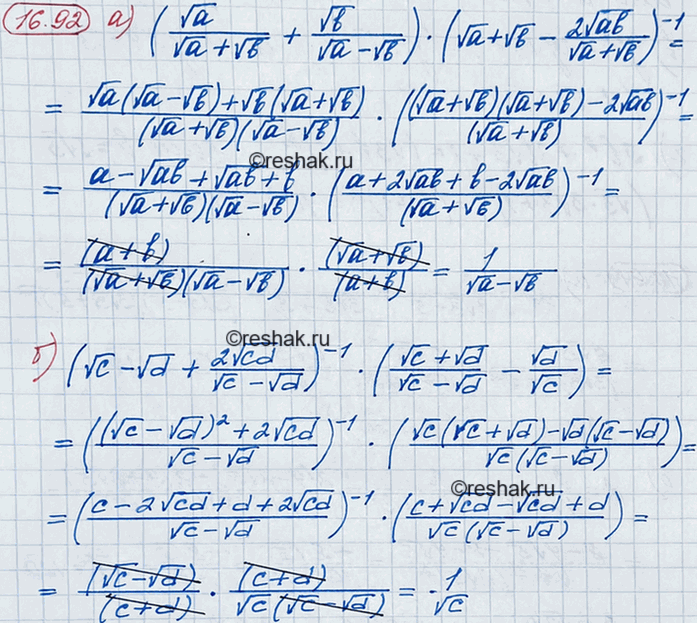 16.92 а) (√a/(√a+√b) + √b/(√a-√b)) · (√a+√b - 2√ab/(√a+√b))^-1 =
= (√a(√a-√b)+√b(√a+√b))/((√a+√b)(√a-√b)) · (((√a+√b)(√a+√b)-2√ab)/(√a+√b))^-1 =
©reshak.ru
= (a-√ab+√ab+b)/((√a+√b)(√a-√b)) · ((a+2√ab+b-2√ab)/(√a+√b))^-1 =
= (a+b)/((√a+√b)(√a-√b)) · (√a+√b)/(a+b) = 1/(√a-√b)
©reshak.ru
б) (√c-√d + 2√cd/(√c-√d))^-1 · ((√c+√d)/(√c-√d) - √d/√c) =
= (((√c-√d)²+2√cd)/(√c-√d))^-1 · ((√c(√c+√d)-√d(√c-√d))/(√c(√c-√d))) =
©reshak.ru
= ((c-2√cd+d+2√cd)/(√c-√d))^-1 · ((c+√cd-√cd+d)/(√c(√c-√d))) =
= (√c-√d)/(c+d) · (c+d)/(√c(√c-√d)) = 1/√c